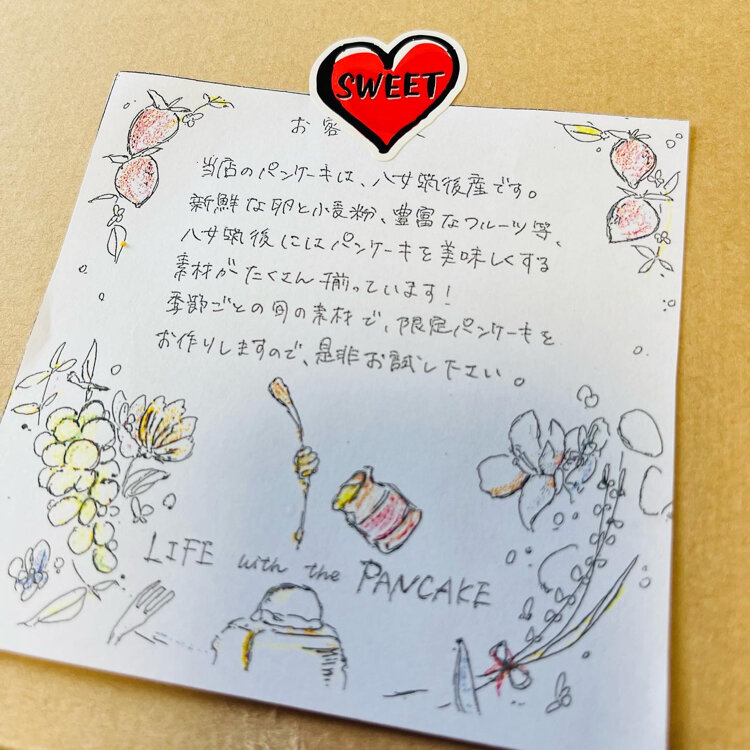 SWEET
お客
当店のパンケーキは、八女筑後産です。
新鮮な卵と小麦粉、豊富なフルーツ等、
八女筑後にはパンケーキを美味しくする
素材がたくさん揃っています!
季節ごとの旬の素材で、限定パンケーキを
お作りしますので、是非お試し下さい。
LIFE with the PANCAKE